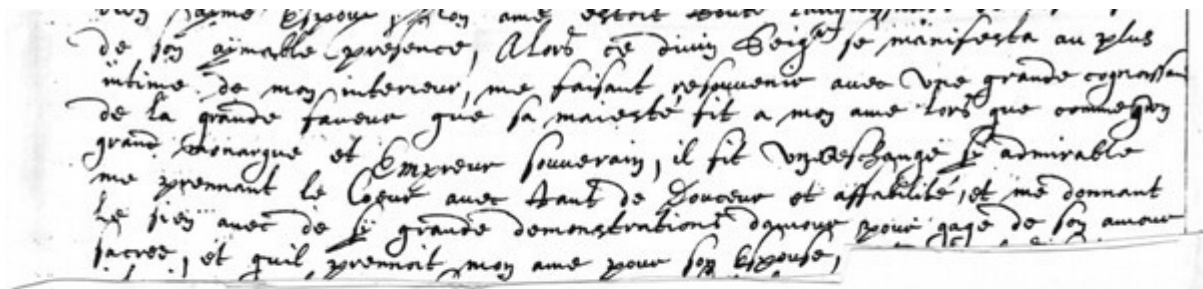 mon ame estoit toute
de son aymable presence, Alors ce divin Seigr se manifesta au plus
intime de mon interieur, me faisant resouvenir avec Une grande cognoissan
de la grande faveur que sa maiesté fit a mon ame lors que comme
grand Monarque et Empreur souverain, il fit Un eschange sy admirable
me prennant le Coeur avec tant de Douceur et affabilité, et me donnant
Le sien avec de sy grande demonstrations damour pour gage de son amour
sacree, et quil prennoit mon ame pour son Espouse,